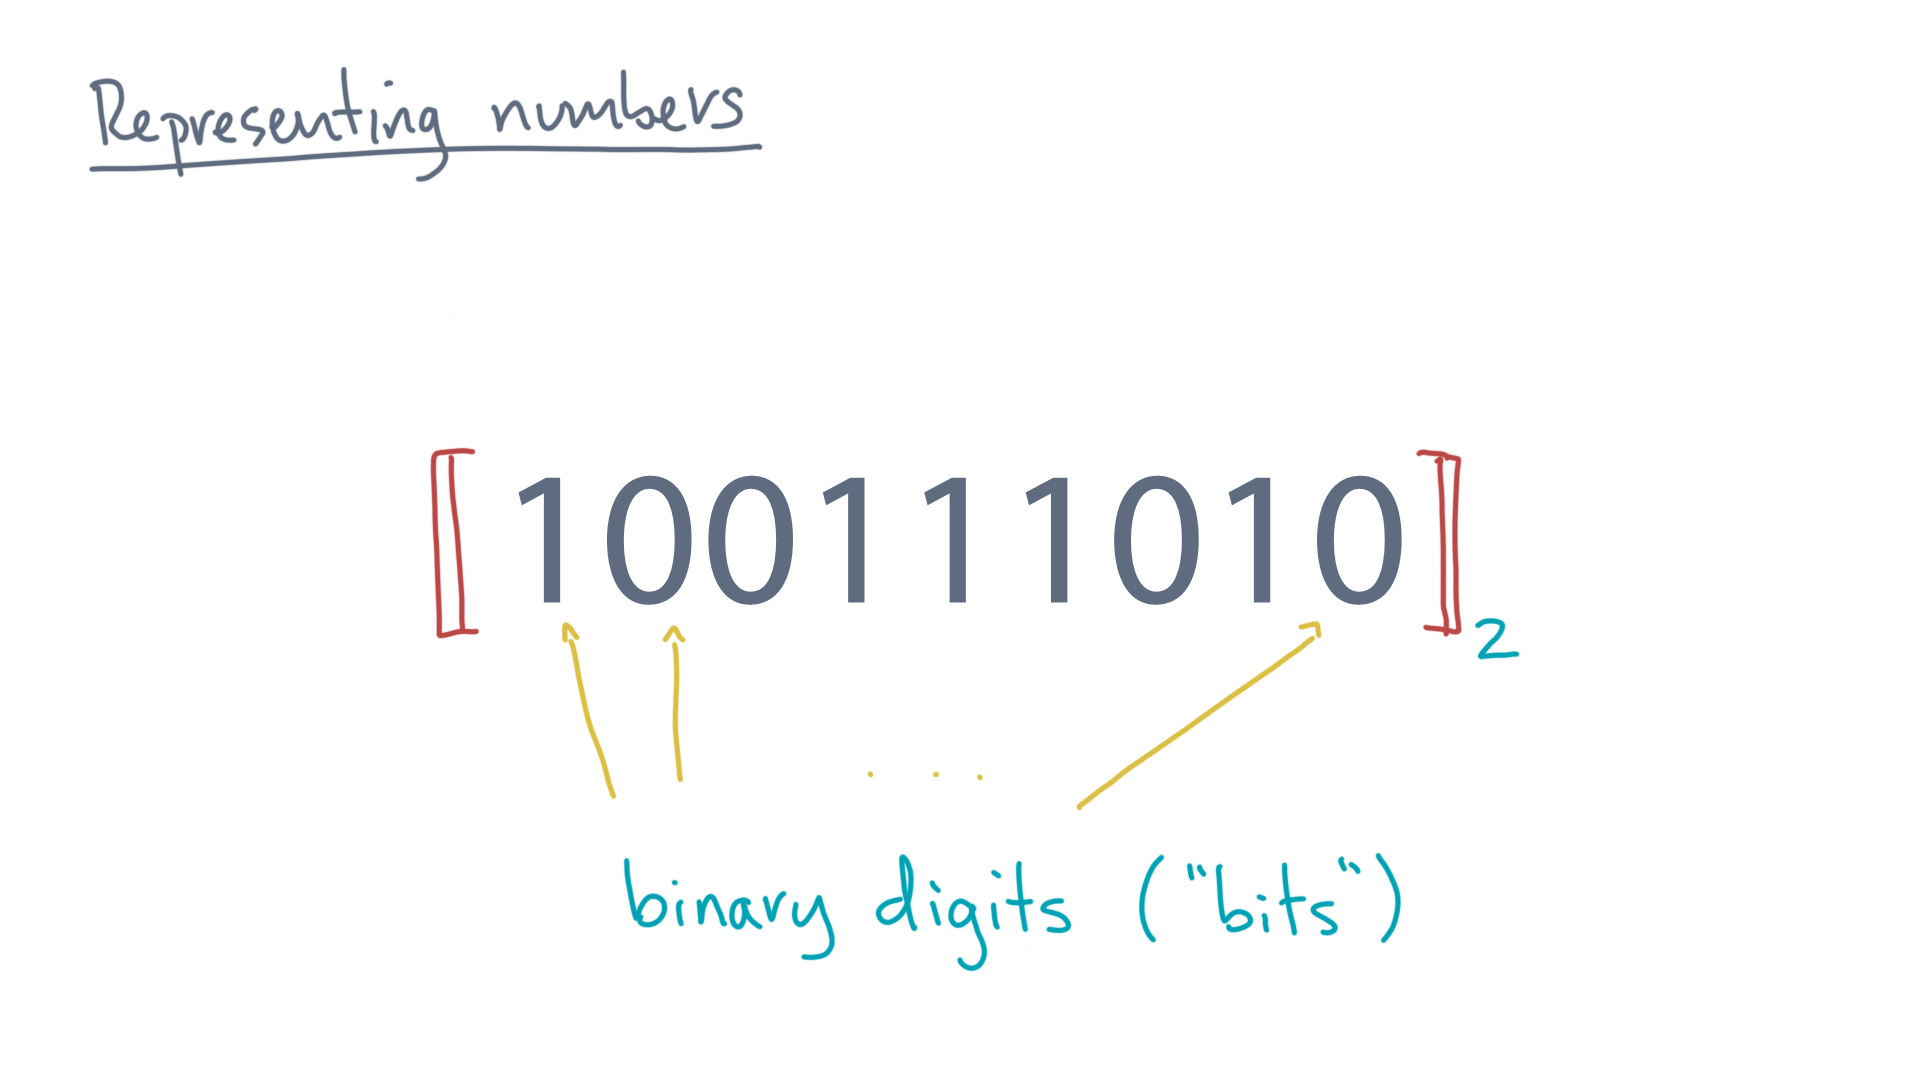 Representing numbers
[[ 100111010 ]]2
. . .
binary digits ("bits")